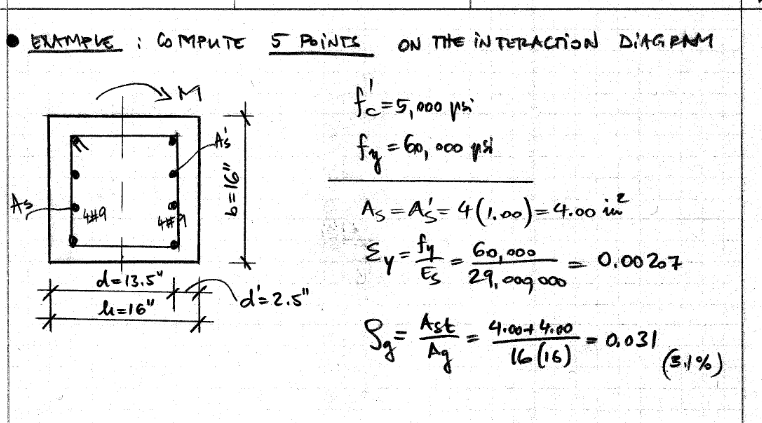 • EXAMPLE : COMPUTE 5 POINTS ON THE INTERACTION DIAGRAM
M
As'
As
4#9
4#9
b=16"
d=13.5"
d'=2.5"
h=16"
f'c=5,000 psi
fy=60,000 psi
As=A's=4(1.00)=4.00 in²
εy=fy/Es=60,000/29,000,000=0.00207
ρg=Ast/Ag=4.00+4.00/16(16)=0.031 (3.1%)